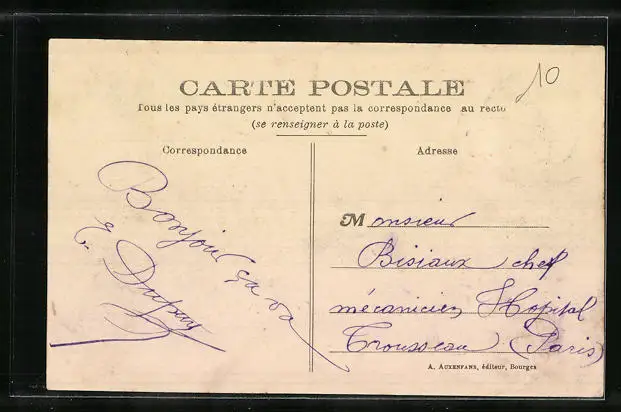 10
CARTE POSTALE
Tous les pays étrangers n'acceptent pas la correspondance au recto
(se renseigner à la poste)
Correspondance
Bonjour ça va
Dupuy
Adresse
Monsieur
Bisiaux chef
mécanicien Hopital
Trousseau (Paris)
A. AUXENFANS, éditeur, Bourges